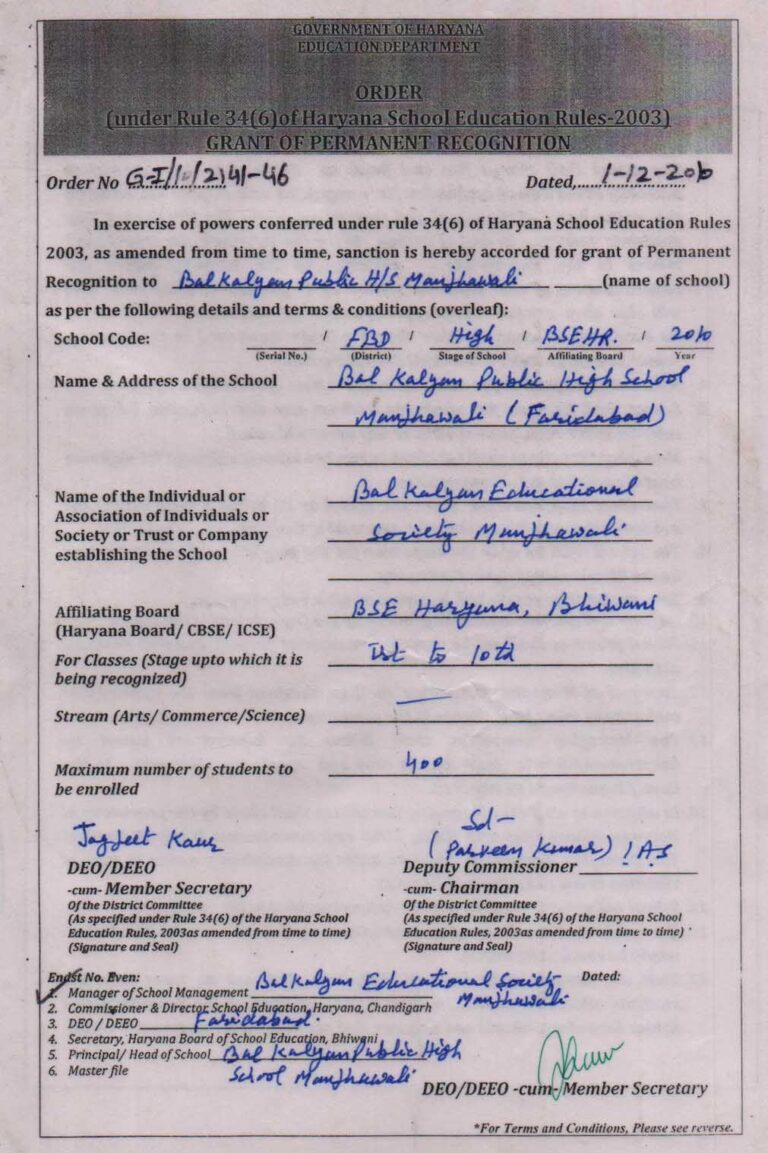 GOVERNMENT OF HARYANA
EDUCATION DEPARTMENT
ORDER
(under Rule 34(6)of Haryana School Education Rules-2003)
GRANT OF PERMANENT RECOGNITION
Order No G-I/1/2141-46 Dated, 1-12-2010
In exercise of powers conferred under rule 34(6) of Haryana School Education Rules
2003, as amended from time to time, sanction is hereby accorded for grant of Permanent
Recognition to Bal Kalyan Public H/S Manjhawali (name of school)
as per the following details and terms & conditions (overleaf):
School Code: / FBD / High / BSEHR. / 2010
(Serial No.) (District) Stage of School Affiliating Board Year
Name & Address of the School Bal Kalyan Public High School
Manjhawali (Faridabad)
Name of the Individual or Bal Kalyan Educational
Association of Individuals or
Society or Trust or Company Society Manjhawali
establishing the School
Affiliating Board BSE Haryana, Bhiwani
(Haryana Board/ CBSE/ ICSE)
For Classes (Stage upto which it is Ist to 10th
being recognized)
Stream (Arts/ Commerce/Science) —
Maximum number of students to 400
be enrolled
Jagjeet Kaur Sd-
(Parveen Kumar) IAS
DEO/DEEO Deputy Commissioner
-cum- Member Secretary -cum- Chairman
Of the District Committee Of the District Committee
(As specified under Rule 34(6) of the Haryana School (As specified under Rule 34(6) of the Haryana School
Education Rules, 2003as amended from time to time) Education Rules, 2003as amended from time to time)
(Signature and Seal) (Signature and Seal)
Endst No. Even: Dated:
1. Manager of School Management Bal Kalyan Educational Society
Manjhawali
2. Commissioner & Director School Education, Haryana, Chandigarh
3. DEO / DEEO Faridabad.
4. Secretary, Haryana Board of School Education, Bhiwani
5. Principal/ Head of School Bal Kalyan Public High
6. Master file School Manjhawali
DEO/DEEO -cum- Member Secretary
*For Terms and Conditions, Please see reverse.